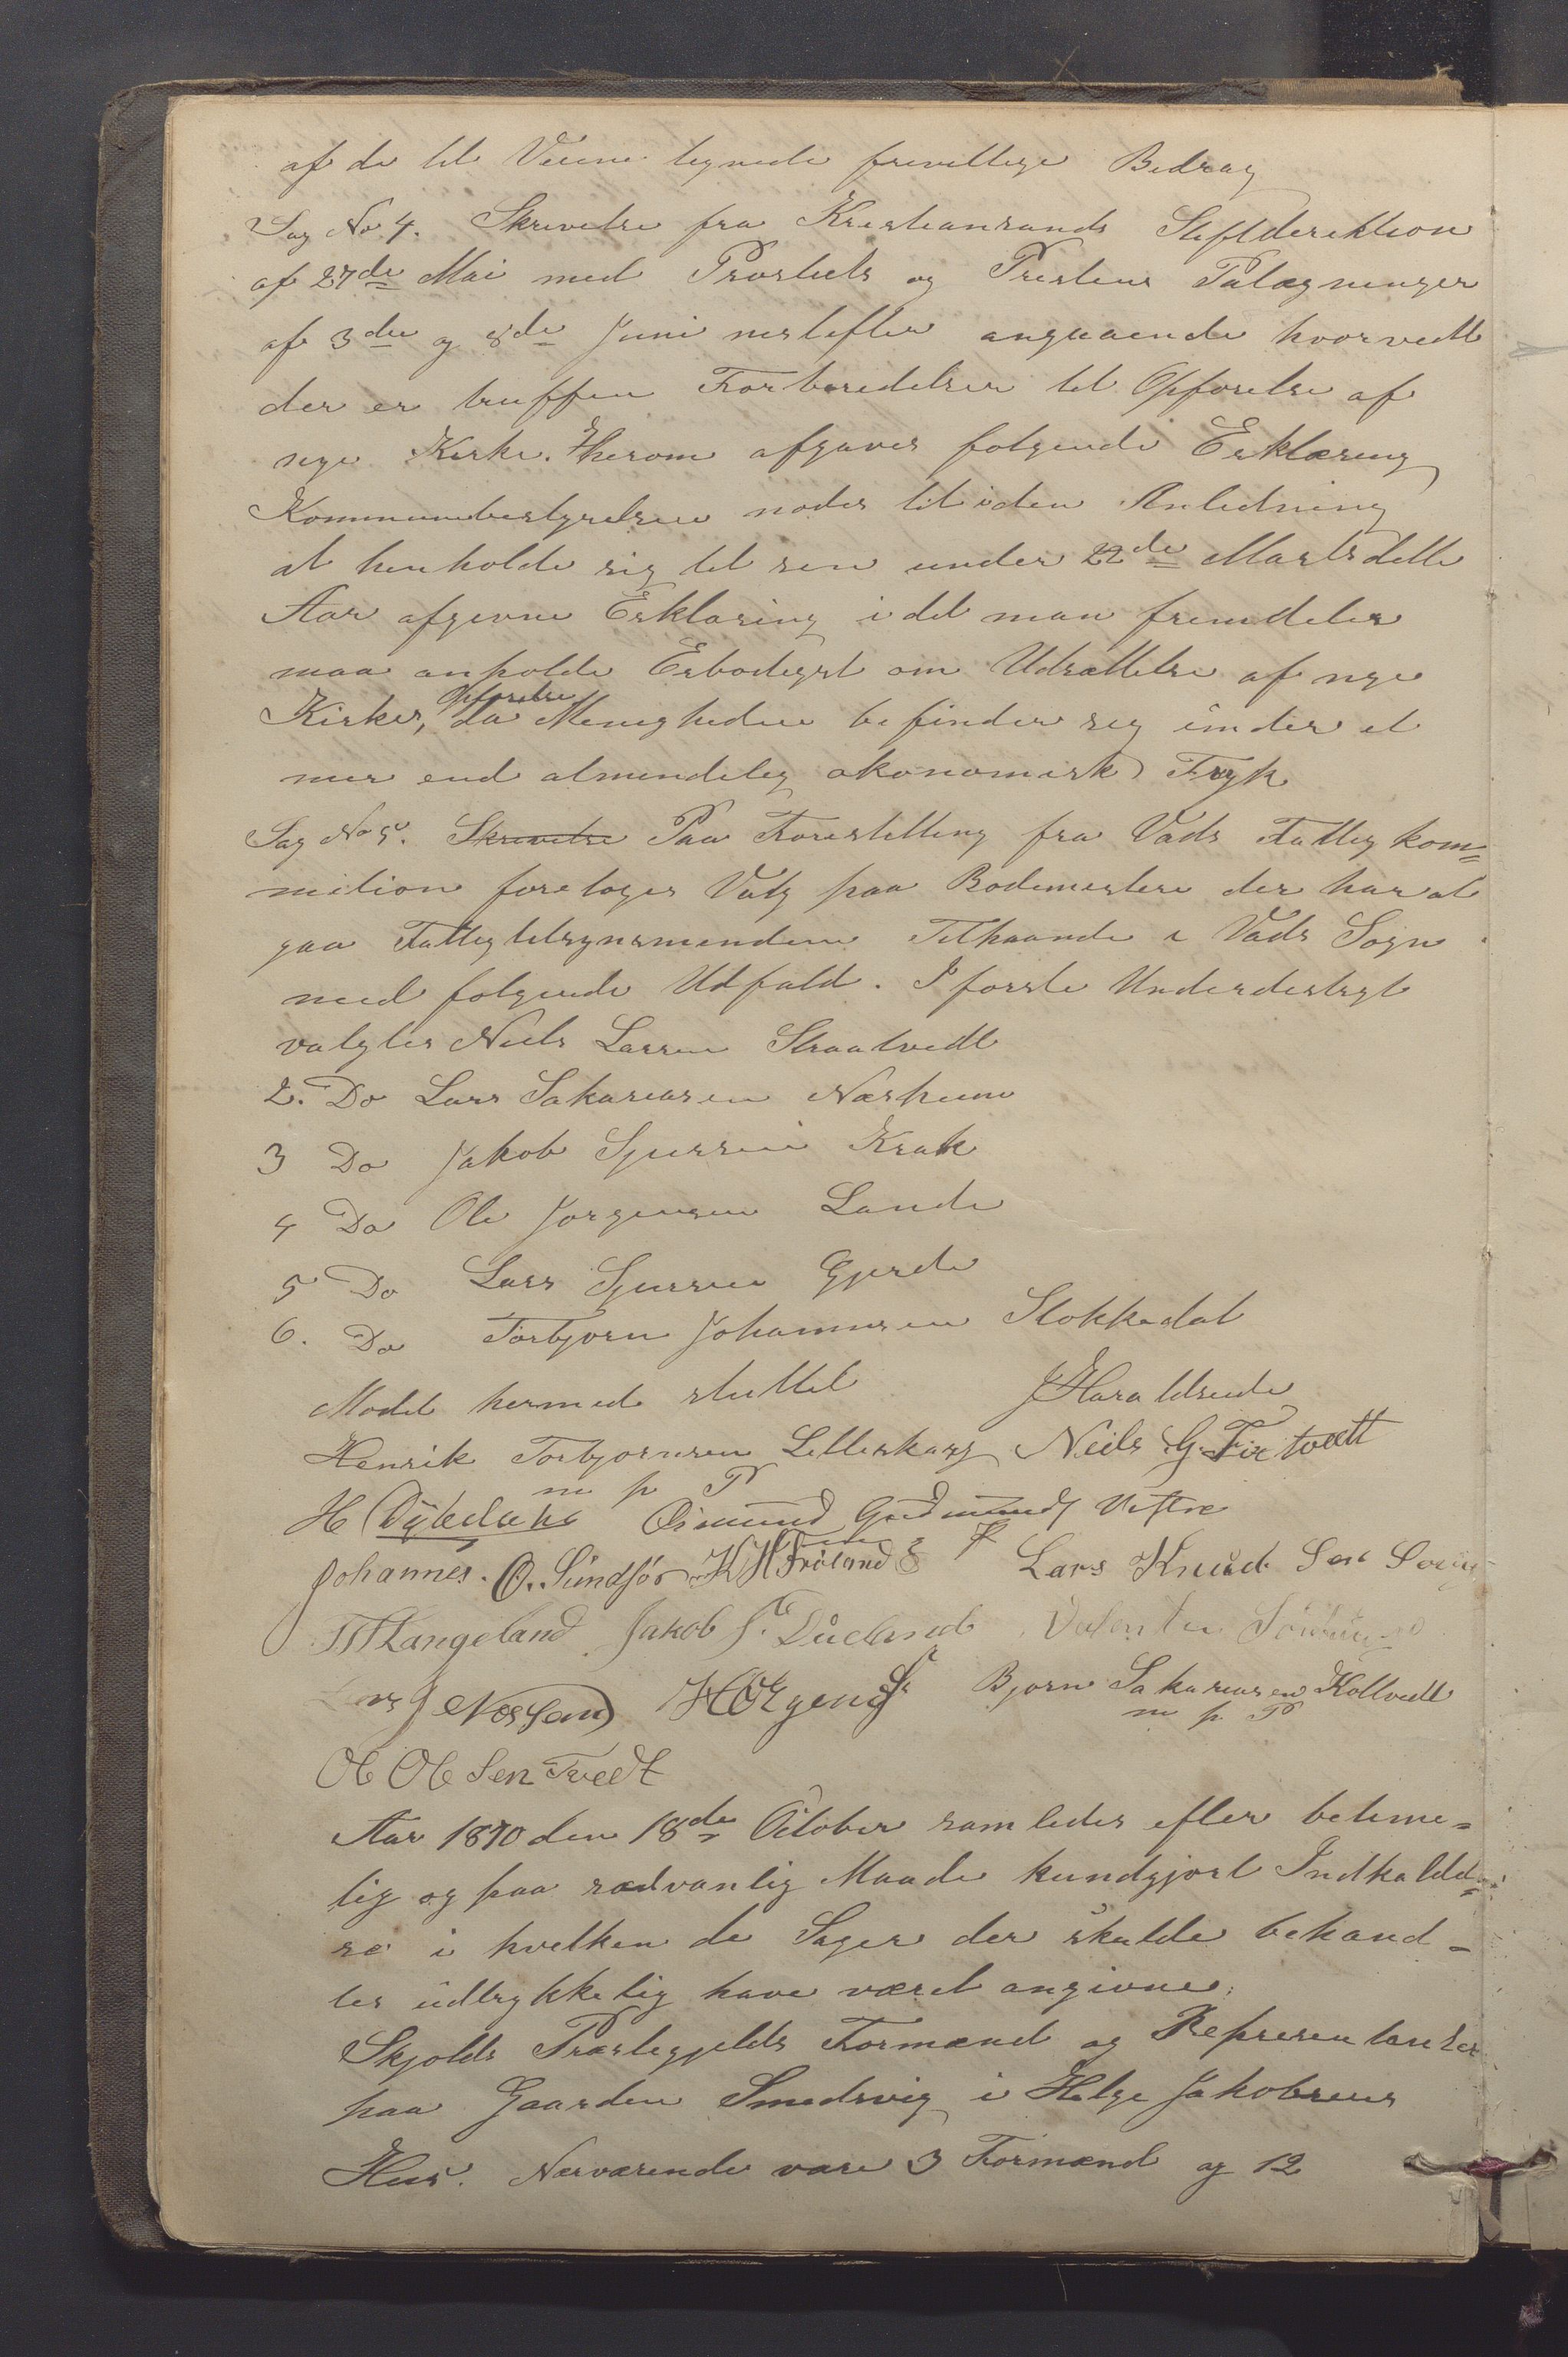 af de til Veiene tegnede frivillige Bedrag
Sag No 4. Skrivelse fra Kristiansands Stiftderektion
af 27de Mai med Prostets og Prestens Palægninger
af 3die og 8de Juni nestefter angaaende hvorvidt
der er truffen Forberedelser til Opførelse af
nye Kirke. Herom afgaves følgende Erklæring
Kommunebestyrelsen nødes til i den Anledning
at henholde sig til sen under 22de Marts dette
Aar afgivne Erklæring i det man fremdeles
maa anholde Erbødigst om Udsættelse af nye
Kirkes, Opførelse da Menigheden befinder sig under et
mer end almindelig økonomisk Tryk
Sag No 5. Skrivelse Paa Forestilling fra Vads Fattigkom=
mition foretoges Valg paa Rodemestere der har at
gaa Fattigtilsynsmendene Tilhaande i Vads Sogn
med følgende Udfald. I første Underdestrgt
valgtes Niels Larsen Straatvedt
2. Do Lars Sakariasen Nærheim
3 Do Jakob Sjursen Krak
4 Do Ole Jørgensen Lande
5 Do Lars Sjursen Gjerde
6. Do Torbjørn Johannesen Stokkedal
Mødet hermed sluttet J Haraldseide
Henrik Torbjørnsen Lilleskarg Neils G. Tixtvedt
m p P
H Dybdahl Osmund Gudmunds Vestre
Johannes. O. Sundfør K H Frøland Lars Knud Sen
Langeland Jakob J. Dueland Valentin
J Næssem H Ørgend Bjørn Sakariasen Kollvedt
m p P
Ole Ole Sen Tvedt
Aar 1870 den 18de October samledes efter betime=
lig og paa sædvanlig Maade kundgjort Indkaldel=
se i hvelken de Sager der skulde behand=
les udtrykkelig have været angivne,
Skjolds Præstegjelds Formænd og Representanter
paa Gaarden Smedsvig i Helge Jakobsens
Hus. Nærværende vare 3 Formænd og 12